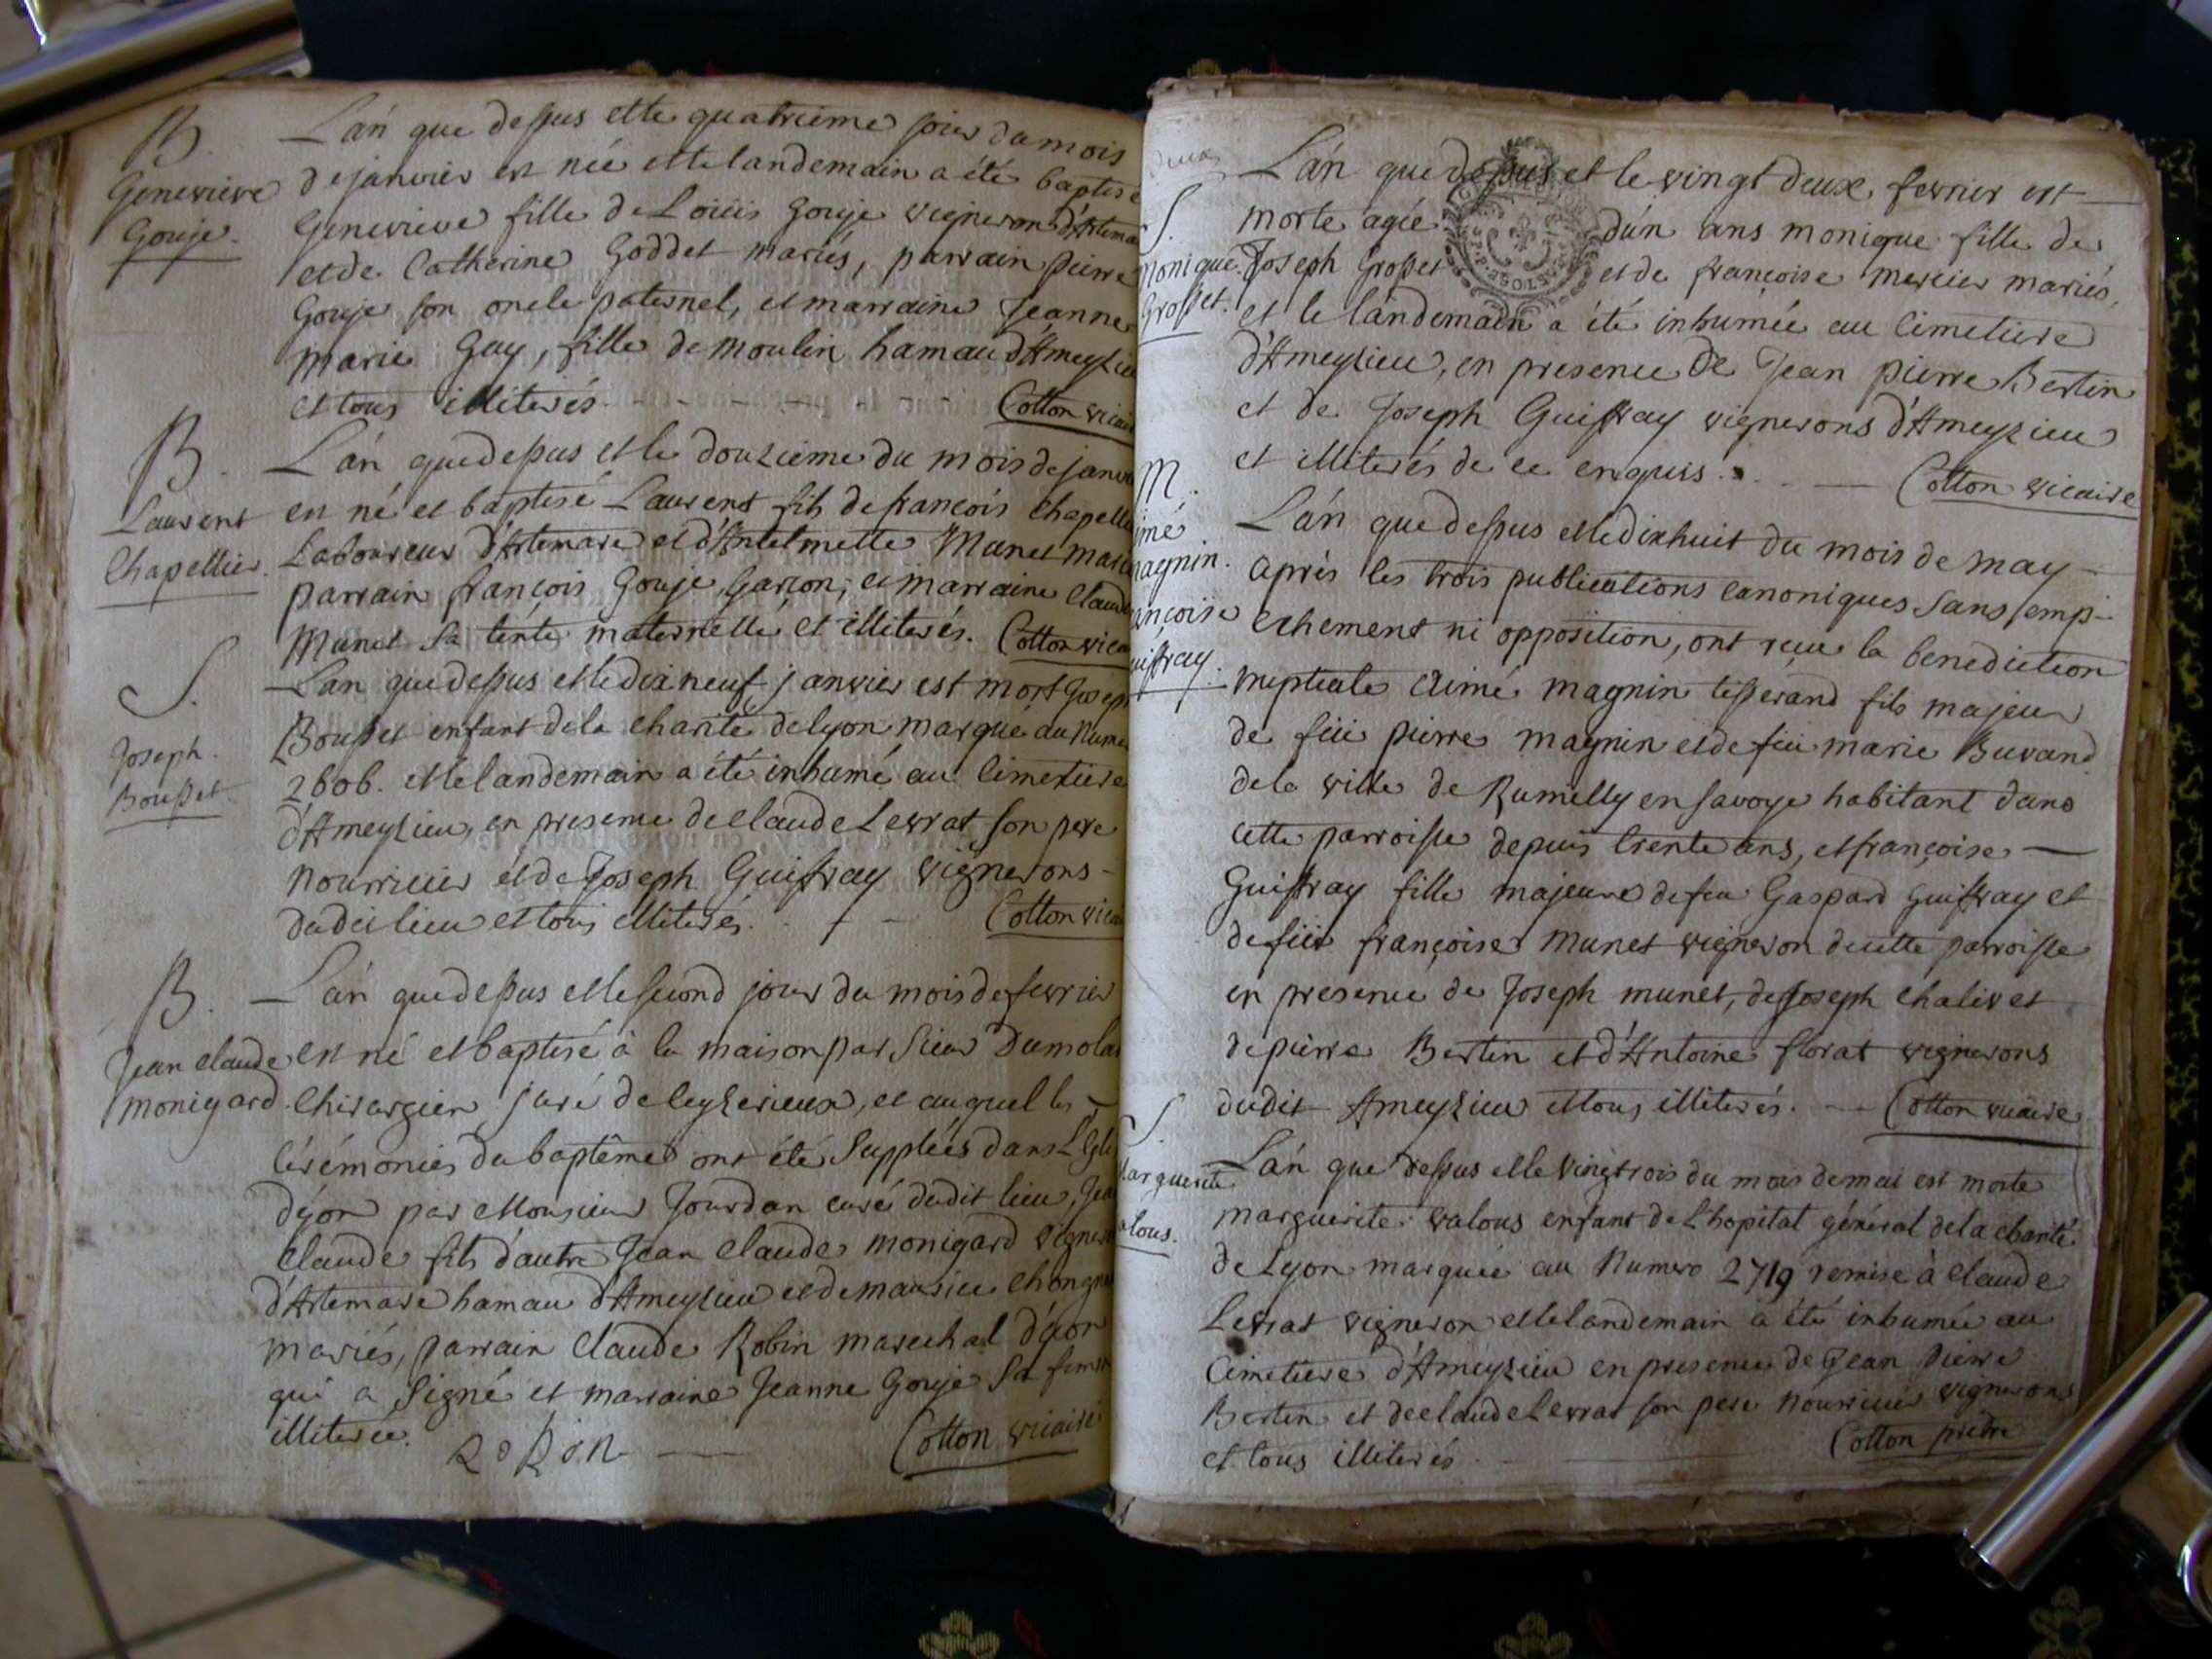 B.
Genevieve
Gouje.
L'an que dessus et le quatrieme jour du mois
de janvier est née et le landemain a été baptisé
Genevieve fille de Loüis Gouje vigneron d'Artema
et de Catherine Goddet mariés, parrain pierre
Gouje son oncle paternel, et marraine Jeanne
marie Gay, fille de moulin hamau d'Ameyzieu
et tous illiterés. Cotton vicai
B.
Laurent
Chapellier.
L'an que dessus et le douzieme du mois de janvi
est né et baptisé Laurent fils de françois Chapelli
Laboureur d'Artemare et d'Antelmette Munet marié
parrain françois Gouje, Garçon, et marraine Claud
Munet sa tente maternelle et illiterés. Cotton vicai
S.
Joseph
Bousset.
L'an que dessus et le dix neuf janvier est mort Joseph
Bousset enfant de la charité de lyon marqué au Nume
2606. et le landemain a été inhumé au Cimetiere
d'Ameyzieu, en presence de Claude Levrat son pere
Nourricier et de Joseph Guiffray vignerons
dudit lieu et tous illiterés. Cotton vicai
B.
Jean Claude
Monigard.
L'an que dessus et le second jour du mois de fevrier
est né et baptisé à la maison par Sieur Dumola
Chirurgien juré de Ceyzerieux, et auquel les
Cérémonies du baptême ont été Supplées dans L'Egli
d'yon par Monsieur Jourdan curé dudit lieu, Jea
Claude fils d'autre Jean Claude monigard vigner
d'Artemare hamau d'Ameyzieu et de maurice Chongn
mariés, parrain Claude Robin marechal d'yon
qui a Signé et marraine Jeanne Gouje Sa femm
illiterée.
RoBin Cotton vicaire
deux
S.
Monique
Grosset.
L'an que dessus et le vingt deux fevrier est
morte agée d'un ans monique fille de
Joseph Grosset et de françoise mercier mariés,
et le landemain a été inhumée au Cimetiere
d'Ameyzieu, en presence de Jean pierre Bertin
et de Joseph Guiffray vignerons d'Ameyzieu
et illiterés de ce enquis. Cotton vicaire
M.
imé
magnin.
ançoise
uiffray.
L'an que dessus et le dixhuit du mois de may
aprés les trois publications canoniques sans empi-
echement ni opposition, ont reçue la benediction
nuptiale Aimé magnin tisserand fils majeur
de feu pierre magnin et de feu marie Buvand
de la ville de Rumilly en savoye habitant dans
cette parroisse depuis trente ans, et françoise
Guiffray fille majeure de feu Gaspard Guiffray et
de feu françoise Munet vigneron de cette parroisse
en presence de Joseph munet, de Joseph Chalivet
de pierre Bertin et d'Antoine florat vignerons
dudit Ameyzieu et tous illiterés. Cotton vicaire
S.
Marguerite
alous.
L'an que dessus et le vingt trois du mois de mai est morte
marguerite valous enfant de L'hopital général de la charité
de Lyon marquée au Numero 2719 remise à Claude
Levrat vigneron et le landemain a été inhumée au
Cimetiere d'Ameyzieu en presence de Jean pierre
Bertin et de Claude Levrat son pere nourricier vignerons
et tous illiterés. Cotton prêtre